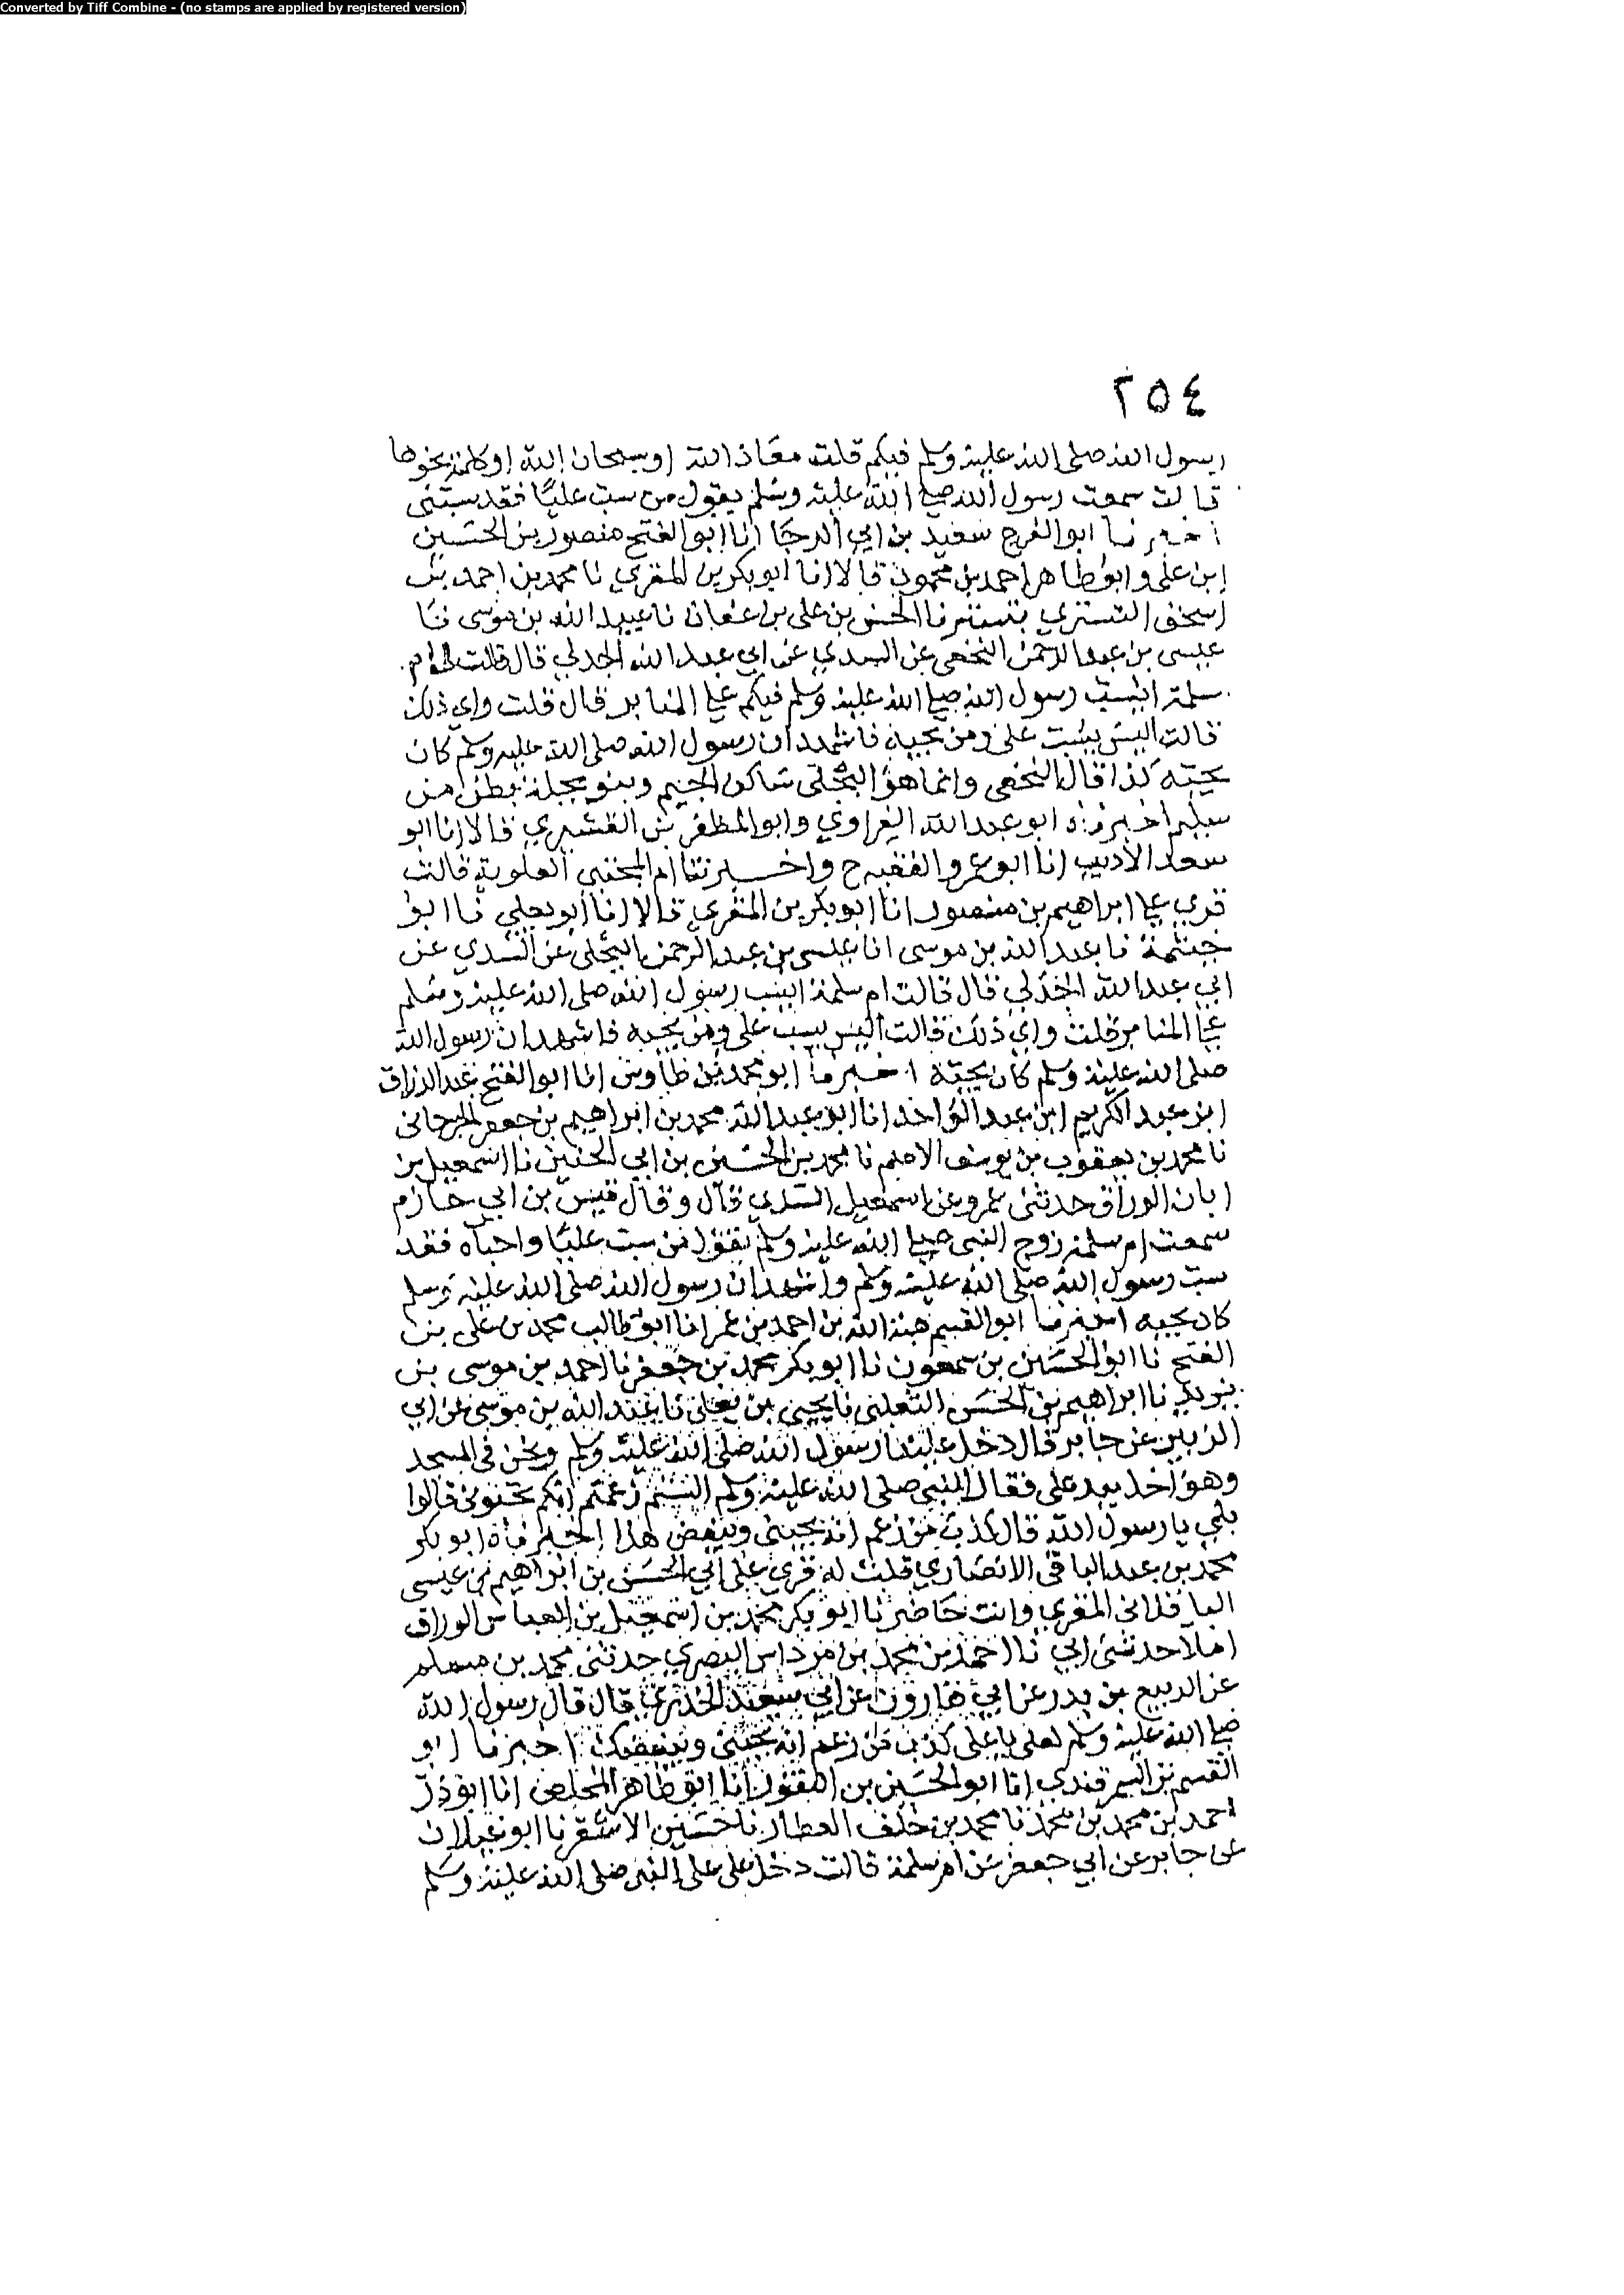 Converted by Tiff Combine - (no stamps are applied by registered version)
٢٥٤
رسول الله صلى الله عليه وسلم فيكم قلت معاذ الله او سبحان الله او كلمة نحوها
قالت سمعت رسول الله صلى الله عليه وسلم يقول من سب عليًا فقد سبني
اخبرنا ابو الفرج سعيد بن ابي الرجا انا ابو الفتح منصور بن الحسين
ابن على وابو طاهر احمد بن محمود قالا انا ابو بكر بن المقري نا محمد بن احمد بن
اسحق التستري بتستر نا الحسن بن على بن عفان نا عبيد الله بن موسى نا
عيسى بن عبد الرحمن النخعى عن السدي عن ابي عبد الله الجدلي قال قالت لى ام
سلمة ايسب رسول الله صلى الله عليه وسلم فيكم على المنابر قال قلت واي ذلك
قالت اليس يسب على ومن يحبه فاشهد ان رسول الله صلى الله عليه وسلم كان
يحبه كذا قال النخعى وانما هو البجلى ساكن الجيم وبنو بجلة بطن من
سليم اخبرناه ابو عبد الله الفراوي وابو المظفر بن القشيري قالا انا ابو
سعد الاديب انا ابو عمرو الفقيه ح واخبرتنا ام المجتبى العلوية قالت
قري على ابراهيم بن منصور انا ابو بكر بن المقري قالا انا ابو يعلي نا ابو
خيثمة نا عبد الله بن موسى انا عيسى بن عبد الرحمن البجلى عن السدي عن
ابي عبد الله الجدلي قال قالت ام سلمة ايسب رسول الله صلى الله عليه وسلم
على المنابر قلت واي ذلك قالت اليس يسب على ومن يحبه فاشهد ان رسول الله
صلى الله عليه وسلم كان يحبه اخبرنا ابو محمد بن طاوس انا ابو الفتح عبد الرزاق
ابن عبد الكريم ابن عبد الواحد انا ابو عبد الله محمد بن ابراهيم بن جعفر الجرجانى
نا محمد بن يعقوب بن يوسف الاصم نا محمد بن الحسين بن ابي الحنين نا اسمعيل بن
ابان الوراق حدثنى عمرو عن اسمعيل السدي قال وقال قيس بن ابي حازم
سمعت ام سلمة زوج النبى صلى الله عليه وسلم تقول من سب عليًا واحباه فقد
سب رسول الله صلى الله عليه وسلم واشهد ان رسول الله صلى الله عليه وسلم
كان يحبه اخبرنا ابو القسم هبة الله بن احمد بن عمر انا ابو طالب محمد بن على بن
الفتح نا ابو الحسين بن سمعون نا ابو بكر محمد بن جعفر نا احمد بن موسى بن
نا ابراهيم بن الحسن التغلبى نا يحيى بن يعلى نا عبد الله بن موسى عن ابي
الزبير عن جابر قال دخل علينا رسول الله صلى الله عليه وسلم ونحن فى المسجد
وهو اخذ بيد على فقال النبى صلى الله عليه وسلم الستم زعمتم انكم تحبونى قالوا
بلى يا رسول الله قال كذب من زعم انه يحبنى ويبغض هذا اخبرناه ابو بكر
محمد بن عبد الباقى الانصاري قلت له قري على ابي الحسن بن ابراهيم بن عيسى
الباقلانى المقري وانت حاضر نا ابو بكر محمد بن اسمعيل بن العباس الوراق
املا حدثنى ابي نا احمد بن محمد بن مرداس البصري حدثنى محمد بن مسلم
عن الربيع بن بدر عن ابي هارون عن ابي سعيد الخدري قال قال رسول الله
صلى الله عليه وسلم لعلى يا على كذب من زعم انه يحبنى ويبغضك اخبرنا ابو
القسم بن السمرقندي انا ابو الحسين بن النقور انا ابو طاهر المخلص انا ابو ذر
احمد بن محمد بن محمد نا محمد بن خلف العطار نا حسين الاشقر نا ابو غيلان
عن جابر عن ابي جعفر عن ام سلمة قالت دخل على على النبى صلى الله عليه وسلم